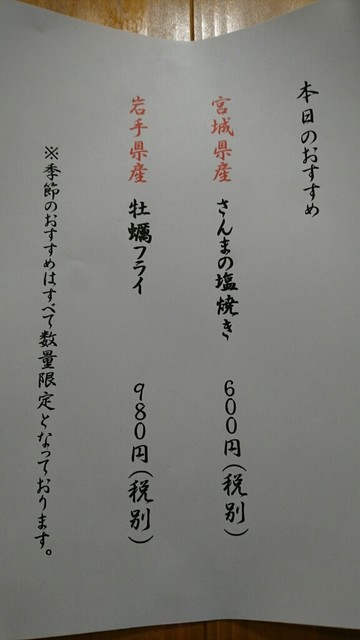 本日のおすすめ
宮城県産 さんまの塩焼き 600円(税別)
岩手県産 牡蠣フライ 980円(税別)
※季節のおすすめはすべて数量限定となっております。